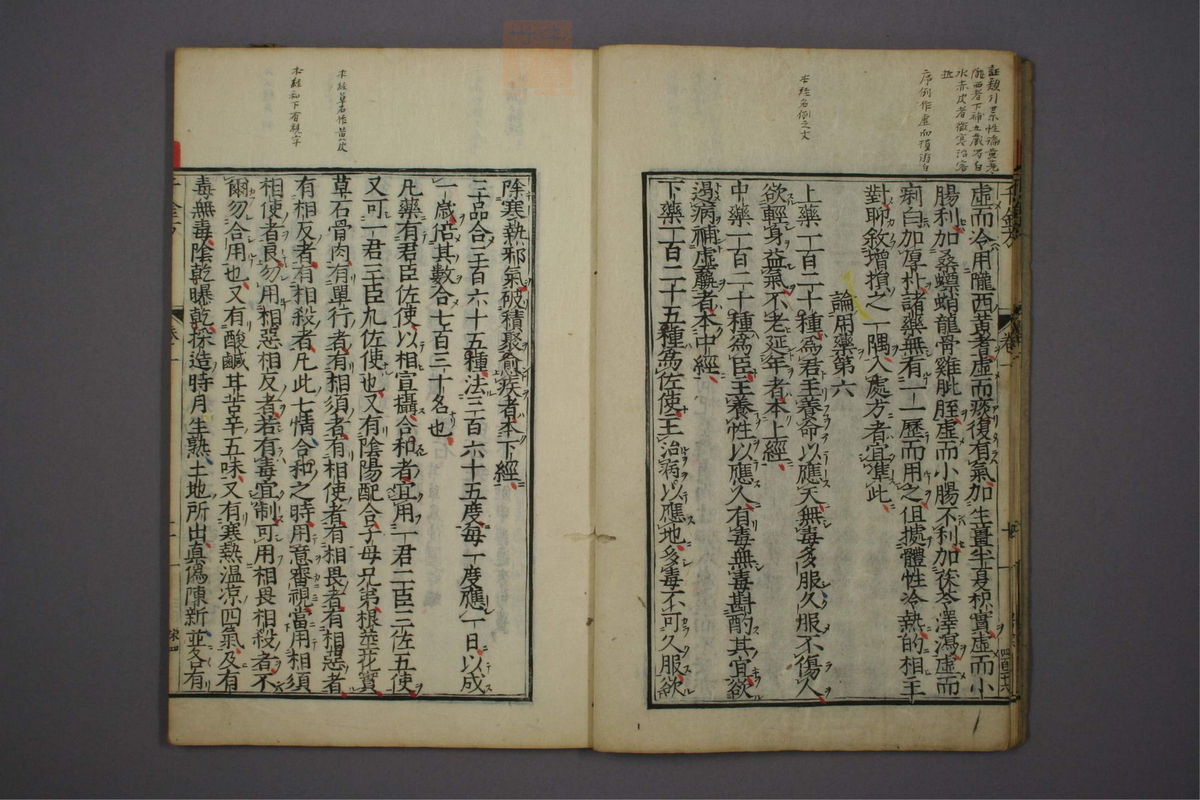 虛而冷用隴西黃耆虛而痰復有氣加生薑半夏枳實虛而小
腸利加桑螵蛸龍骨雞肶胵虛而小腸不利加茯苓澤瀉虛而
痢白加厚朴諸藥無有一一歷而用之但據體性冷熱的相主
對聊敘增損之一隅入處方者宜準此
論用藥第六
上藥一百二十種爲君主養命以應天無毒多服久服不傷人
欲輕身益氣不老延年者本上經
中藥一百二十種爲臣主養性以應人有毒無毒斟酌其宜欲
遏病補虛羸者本中經
下藥一百二十五種爲佐使主治病以應地多毒不可久服欲
除寒熱邪氣破積聚愈疾者本下經
三品合三百六十五種法三百六十五度每一度應一日以成
一歲倍其數合七百三十名也
凡藥有君臣佐使以相宣攝合和者宜用一君二臣三佐五使
又可一君三臣九佐使也又有陰陽配合子母兄弟根莖花實
草石骨肉有單行者有相須者有相使者有相畏者有相惡者
有相反者有相殺者凡此七情合和之時用意審視當用相須
相使者良勿用相惡相反者若有毒宜制可用相畏相殺者不
爾勿合用也又有酸鹹甘苦辛五味又有寒熱溫涼四氣及有
毒無毒陰乾曝乾採造時月生熟土地所出真僞陳新並各有
序例作虛而損溺白
本經名例之文
本經草石作苗皮
本經和下有視字